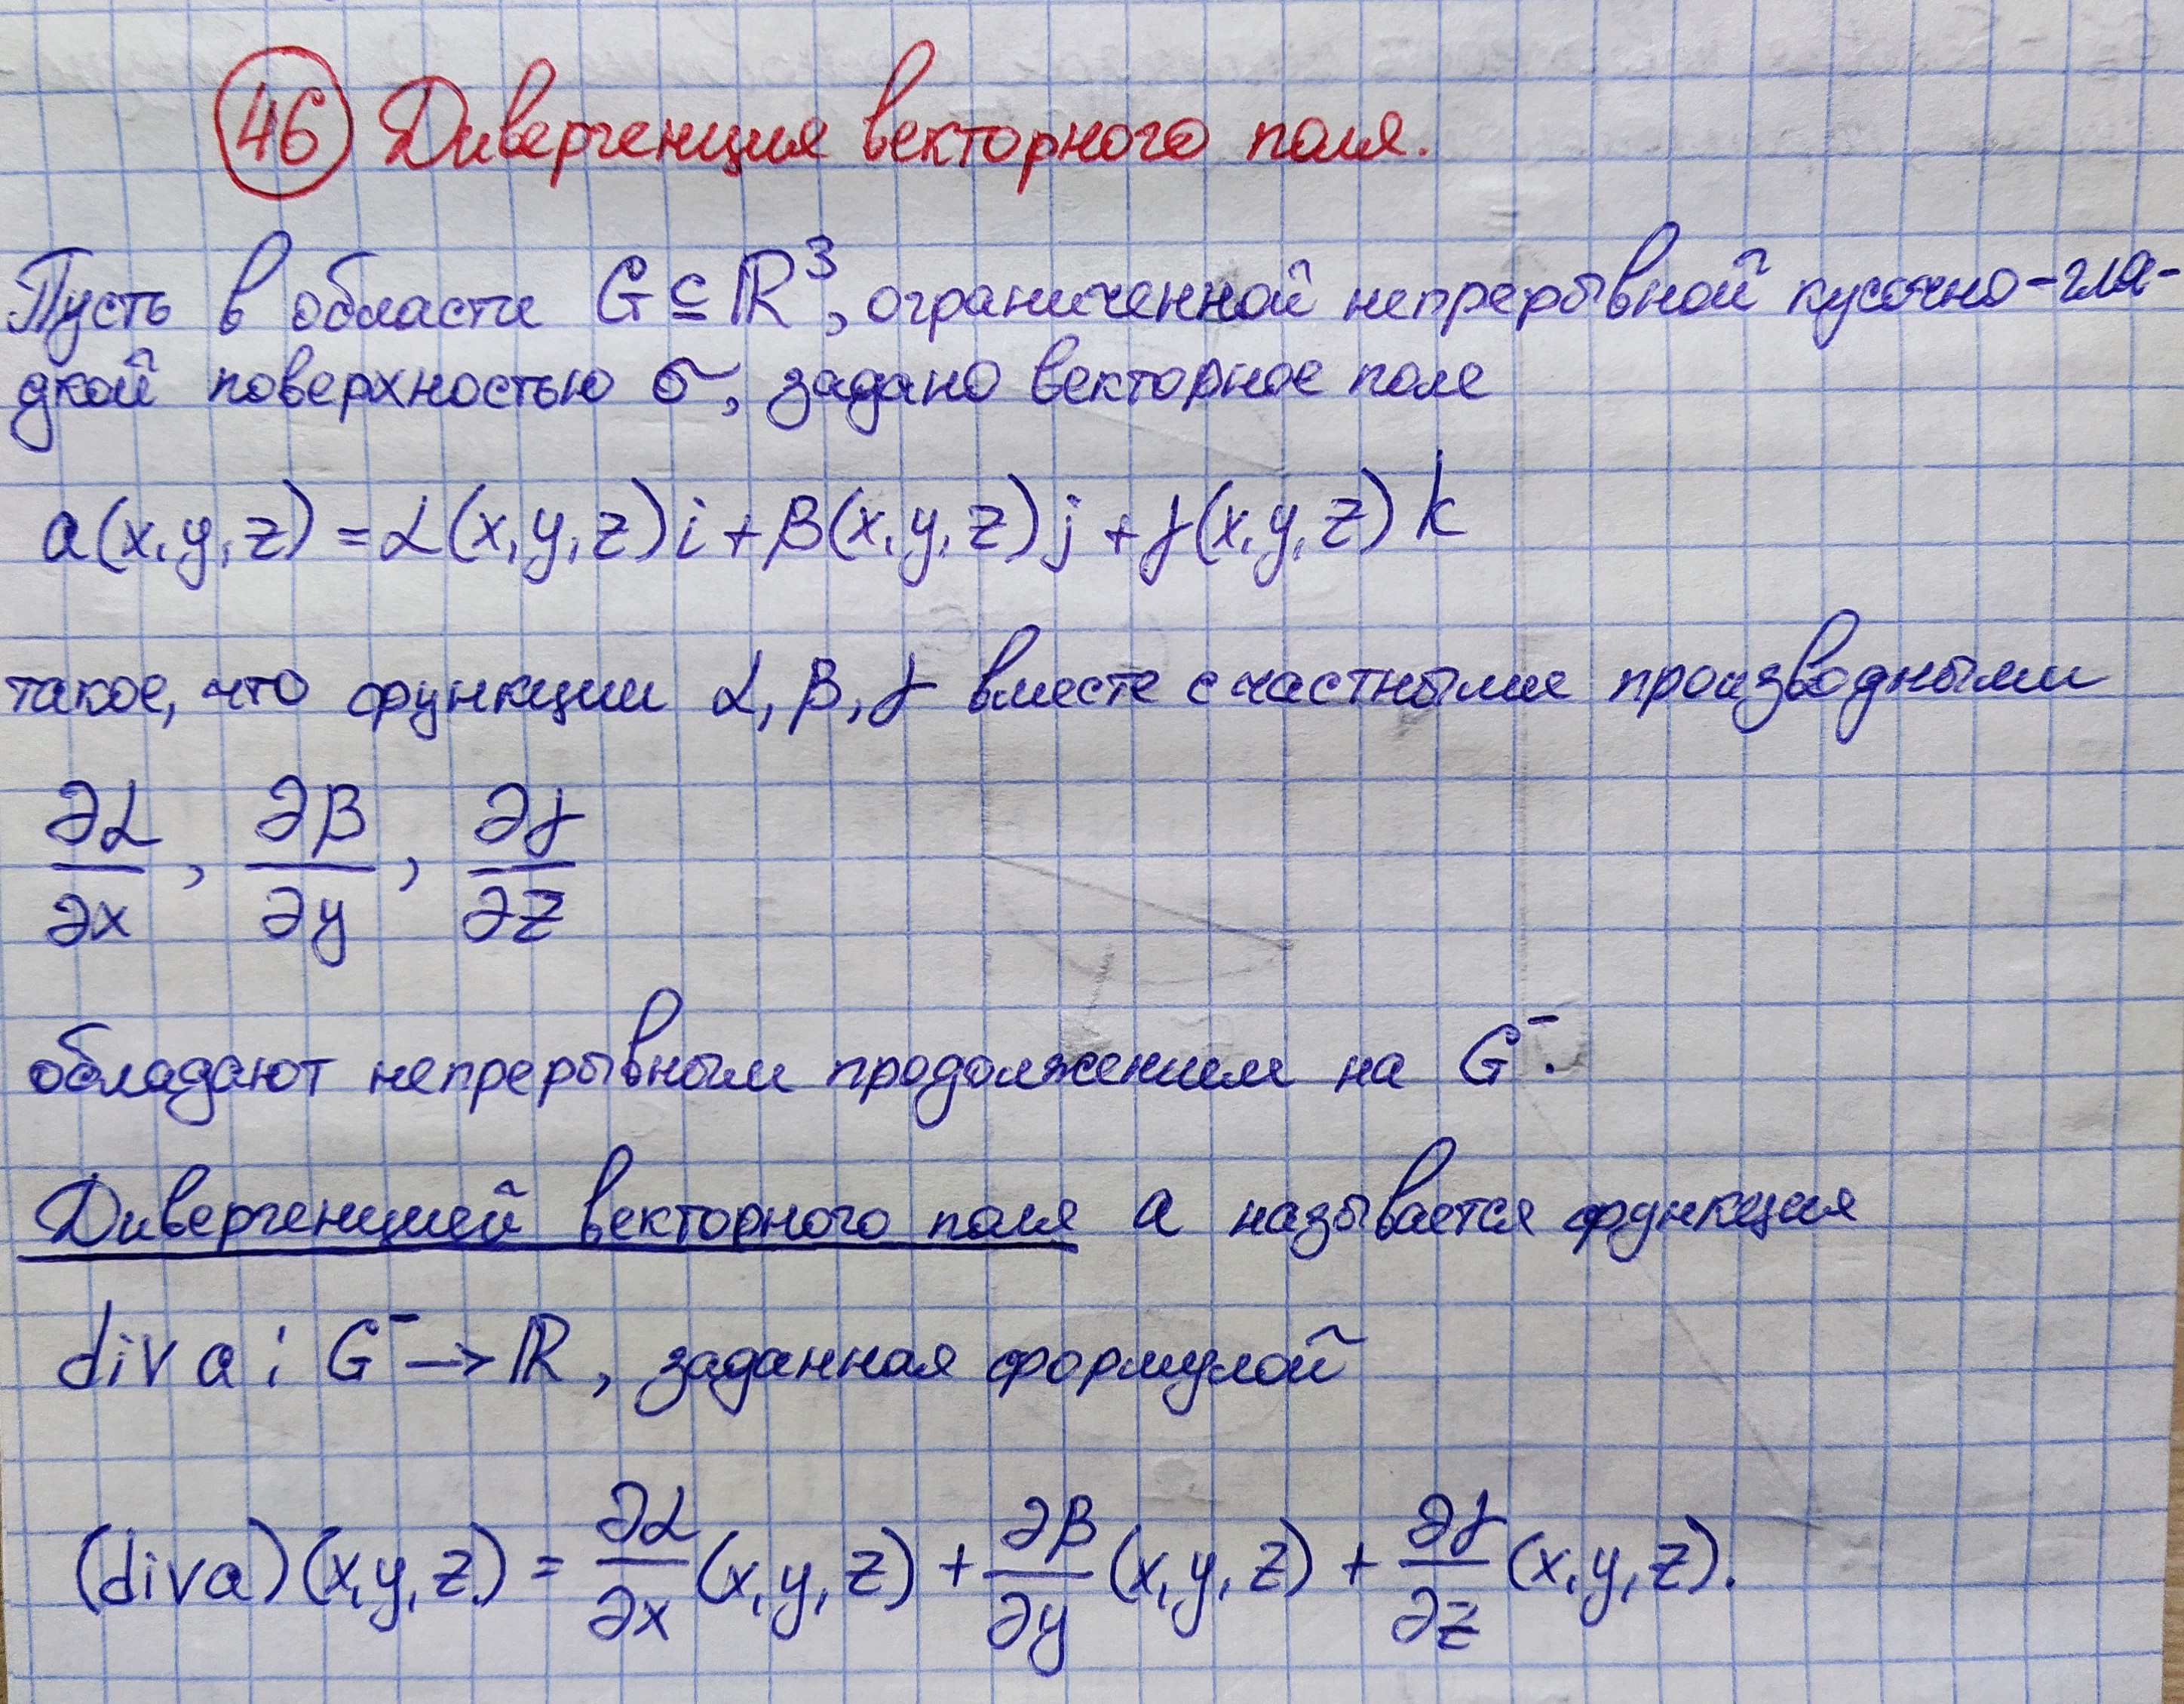 46 Дивергенция векторного поля.
Пусть в области G ⊆ ℝ³, ограниченной непрерывной кусочно-гла-
дкой поверхностью σ, задано векторное поле
a(x,y,z) = α(x,y,z)i + β(x,y,z)j + γ(x,y,z)k
такое, что функции α, β, γ вместе с частными производными
∂α/∂x, ∂β/∂y, ∂γ/∂z
обладают непрерывным продолжением на G⁻.
Дивергенцией векторного поля a называется функция
div a : G⁻ → ℝ, заданная формулой
(div a)(x,y,z) = ∂α/∂x (x,y,z) + ∂β/∂y (x,y,z) + ∂γ/∂z (x,y,z).